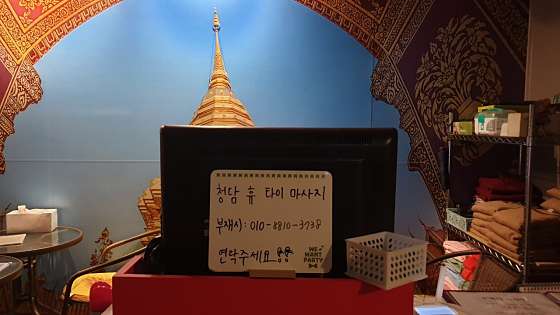 청담 휴 타이 마사지
부재시: 010-8810-3738
연락주세요
WE
WANT
PARTY